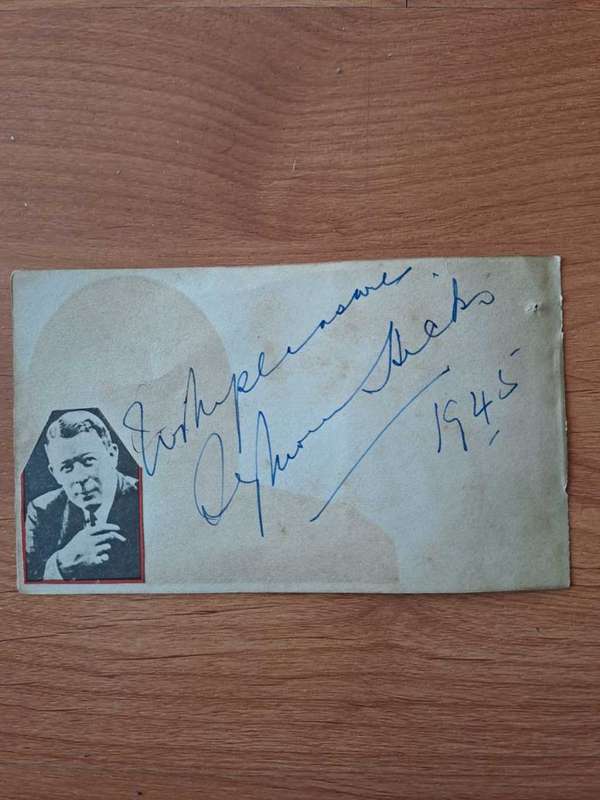 With pleasure
Seymour Hicks
1945